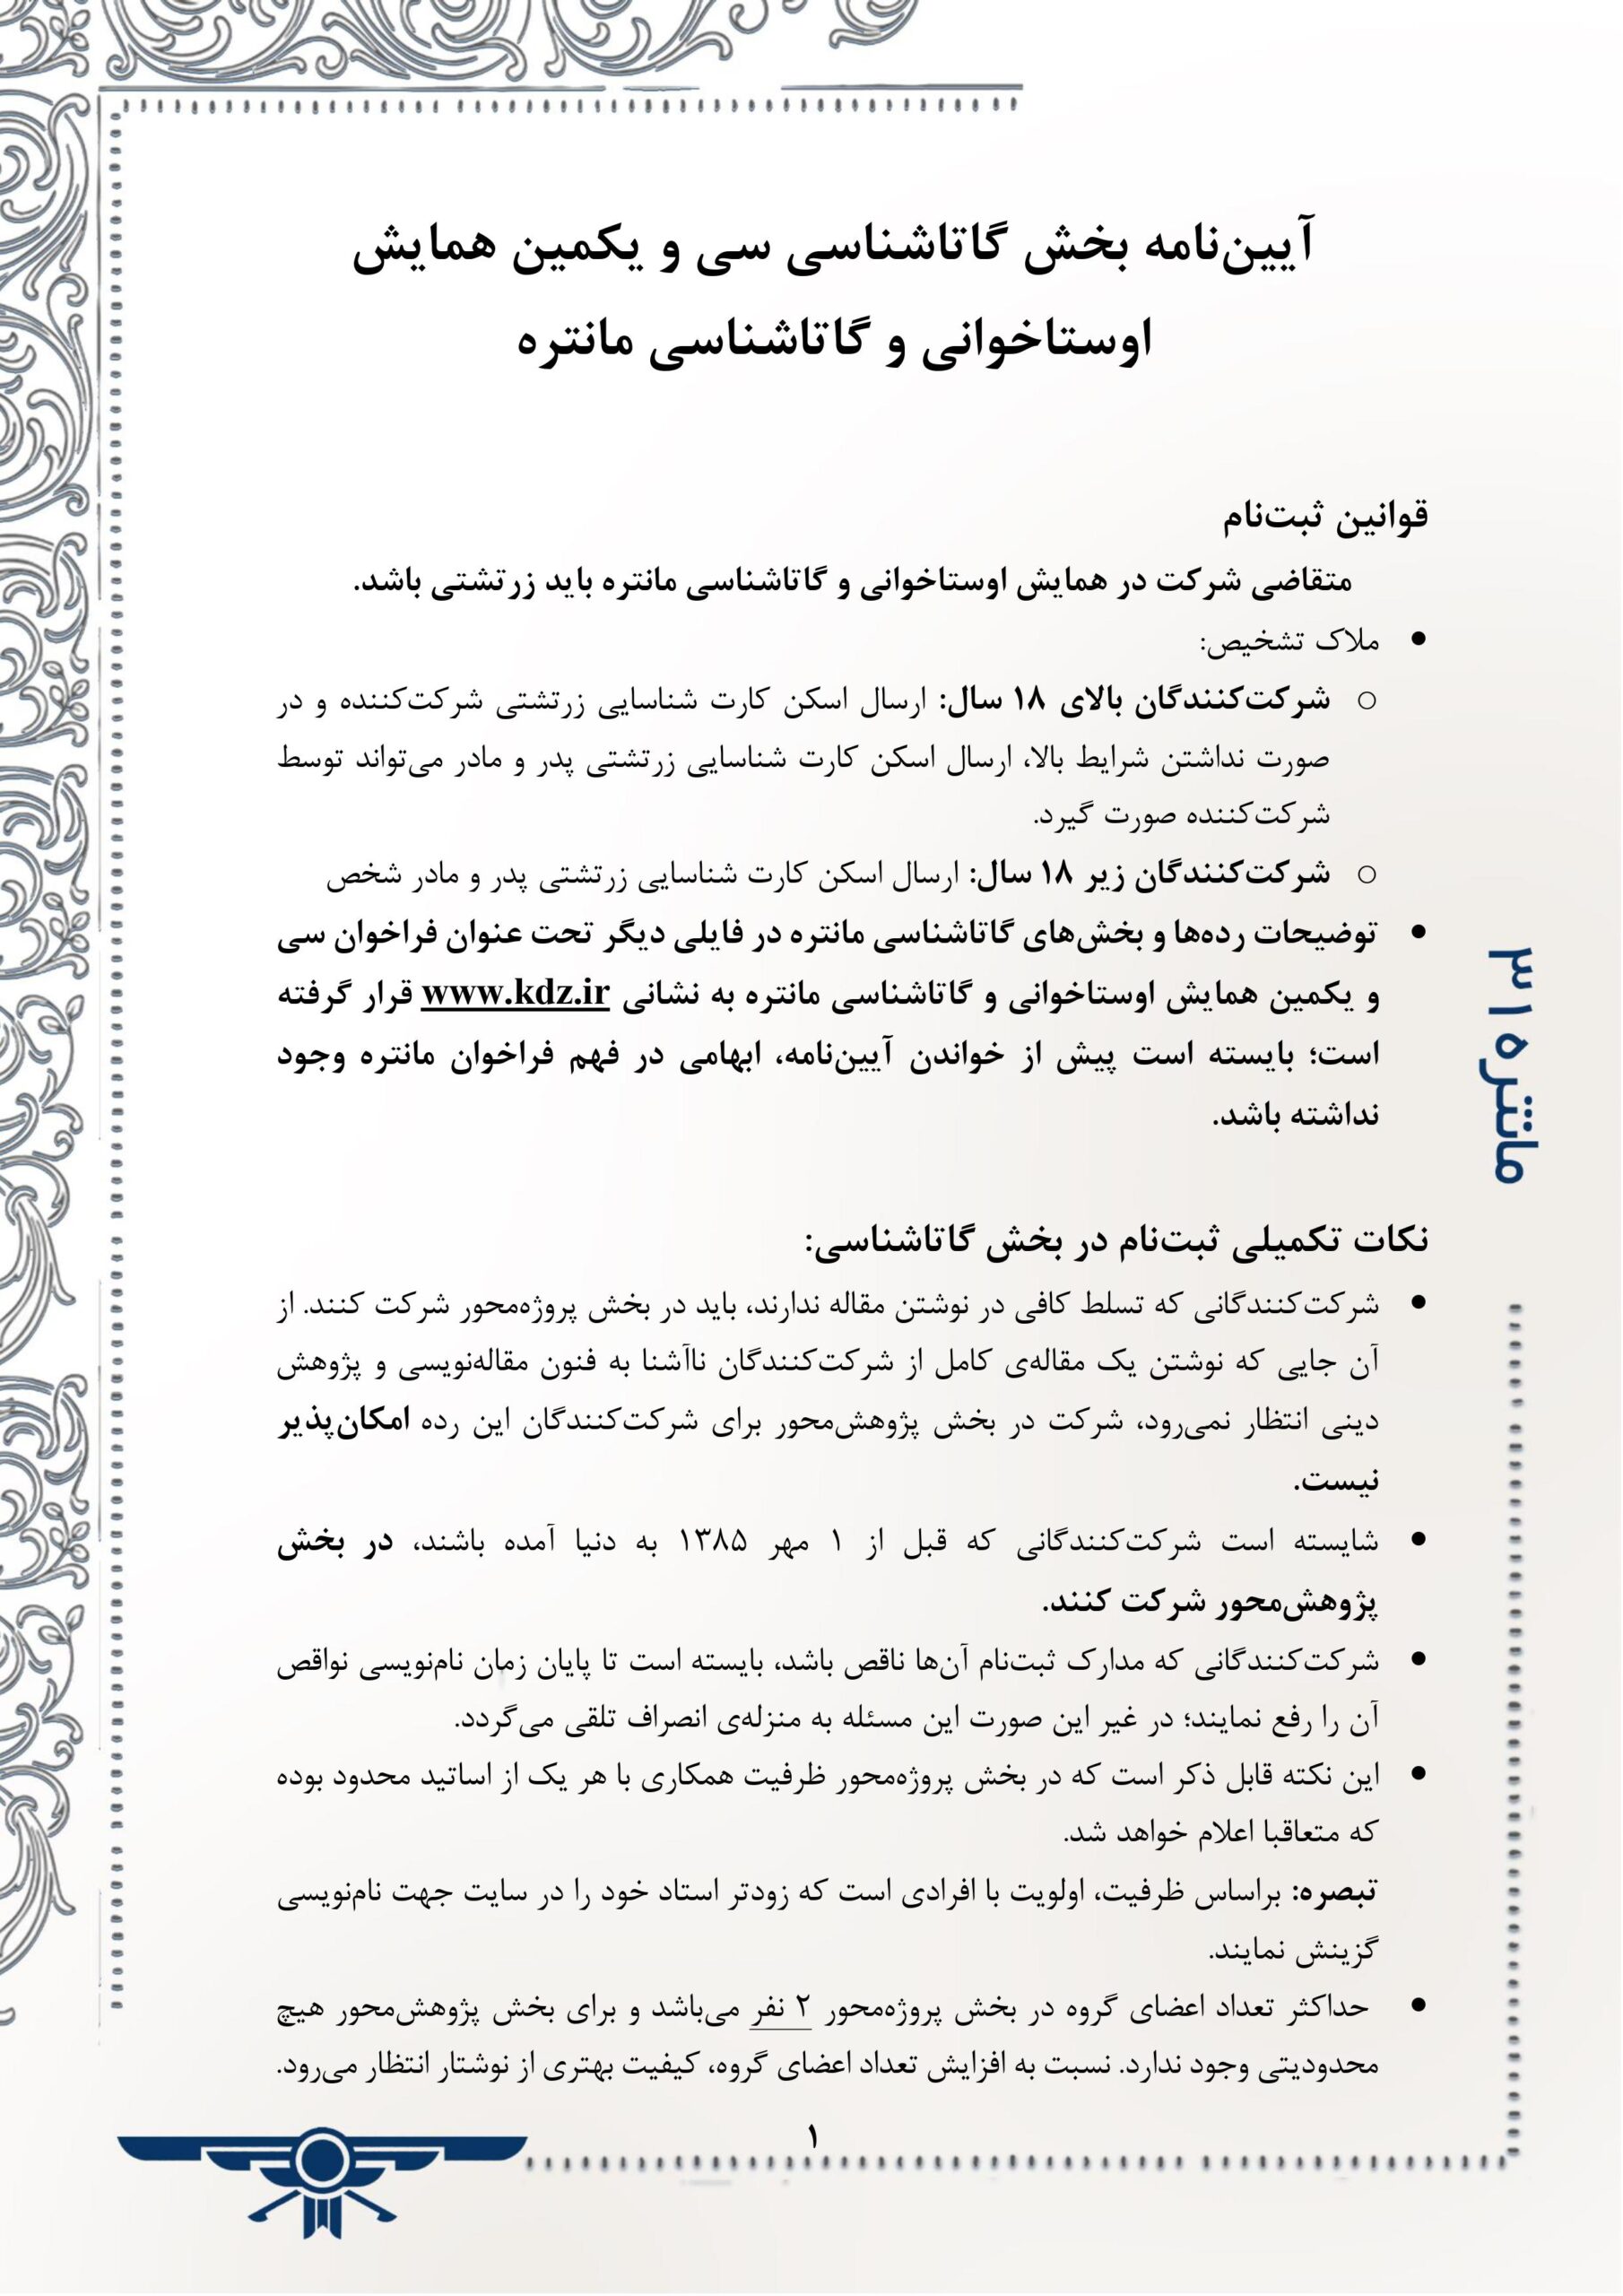 آیین‌نامه بخش گاتاشناسی سی و یکمین همایش
اوستاخوانی و گاتاشناسی مانتره
قوانین ثبت‌نام
متقاضی شرکت در همایش اوستاخوانی و گاتاشناسی مانتره باید زرتشتی باشد.
● ملاک تشخیص:
○ شرکت‌کنندگان بالای ۱۸ سال: ارسال اسکن کارت شناسایی زرتشتی شرکت‌کننده و در
صورت نداشتن شرایط بالا، ارسال اسکن کارت شناسایی زرتشتی پدر و مادر می‌تواند توسط
شرکت‌کننده صورت گیرد.
○ شرکت‌کنندگان زیر ۱۸ سال: ارسال اسکن کارت شناسایی زرتشتی پدر و مادر شخص
● توضیحات رده‌ها و بخش‌های گاتاشناسی مانتره در فایلی دیگر تحت عنوان فراخوان سی
و یکمین همایش اوستاخوانی و گاتاشناسی مانتره به نشانی www.kdz.ir قرار گرفته
است؛ بایسته است پیش از خواندن آیین‌نامه، ابهامی در فهم فراخوان مانتره وجود
نداشته باشد.
مانتره ۳۱
نکات تکمیلی ثبت‌نام در بخش گاتاشناسی:
● شرکت‌کنندگانی که تسلط کافی در نوشتن مقاله ندارند، باید در بخش پروژه‌محور شرکت کنند. از
آن جایی که نوشتن یک مقاله‌ی کامل از شرکت‌کنندگان ناآشنا به فنون مقاله‌نویسی و پژوهش
دینی انتظار نمی‌رود، شرکت در بخش پژوهش‌محور برای شرکت‌کنندگان این رده امکان‌پذیر
نیست.
● شایسته است شرکت‌کنندگانی که قبل از ۱ مهر ۱۳۸۵ به دنیا آمده باشند، در بخش
پژوهش‌محور شرکت کنند.
● شرکت‌کنندگانی که مدارک ثبت‌نام آن‌ها ناقص باشد، بایسته است تا پایان زمان نام‌نویسی نواقص
آن را رفع نمایند؛ در غیر این صورت این مسئله به منزله‌ی انصراف تلقی می‌گردد.
● این نکته قابل ذکر است که در بخش پروژه‌محور ظرفیت همکاری با هر یک از اساتید محدود بوده
که متعاقبا اعلام خواهد شد.
تبصره: براساس ظرفیت، اولویت با افرادی است که زودتر استاد خود را در سایت جهت نام‌نویسی
گزینش نمایند.
● حداکثر تعداد اعضای گروه در بخش پروژه‌محور ۲ نفر می‌باشد و برای بخش پژوهش‌محور هیچ
محدودیتی وجود ندارد. نسبت به افزایش تعداد اعضای گروه، کیفیت بهتری از نوشتار انتظار می‌رود.
۱